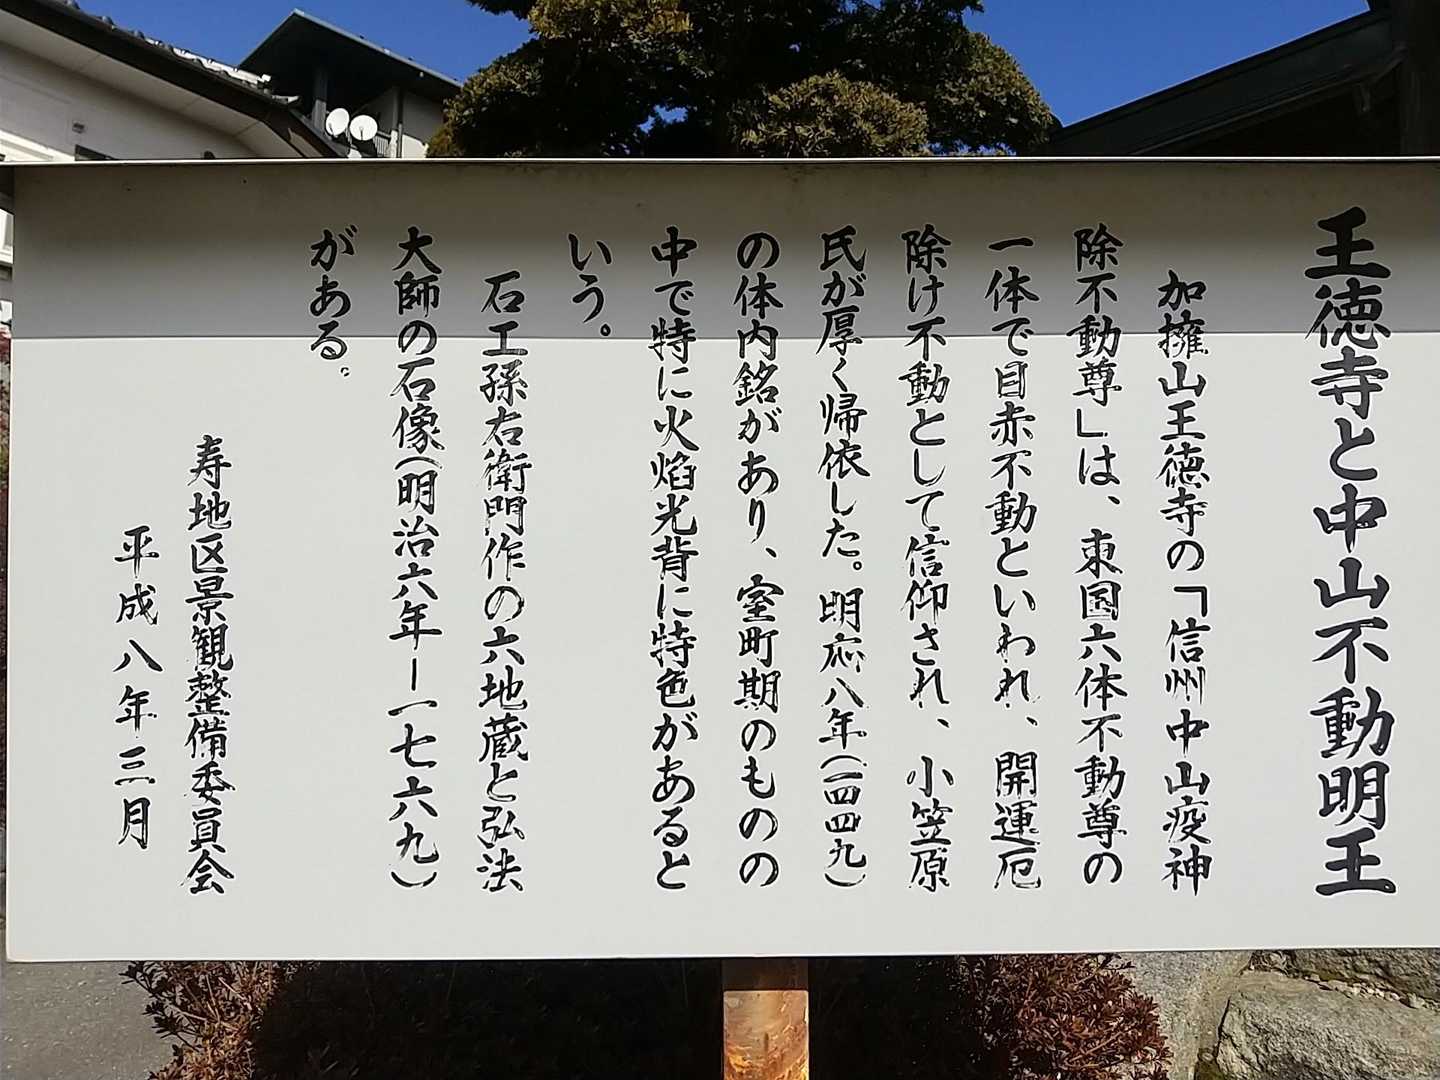 王徳寺と中山不動明王
加擁山王徳寺の「信州中山疫神
除不動尊」は、東国六体不動尊の
一体で目赤不動といわれ、開運厄
除け不動として信仰され、小笠原
氏が厚く帰依した。明応八年(一四四九)
の体内銘があり、室町期のものの
中で特に火焰光背に特色があると
いう。
石工孫右衛門作の六地蔵と弘法
大師の石像(明治六年ー一七六九)
がある。
寿地区景観整備委員会
平成八年三月